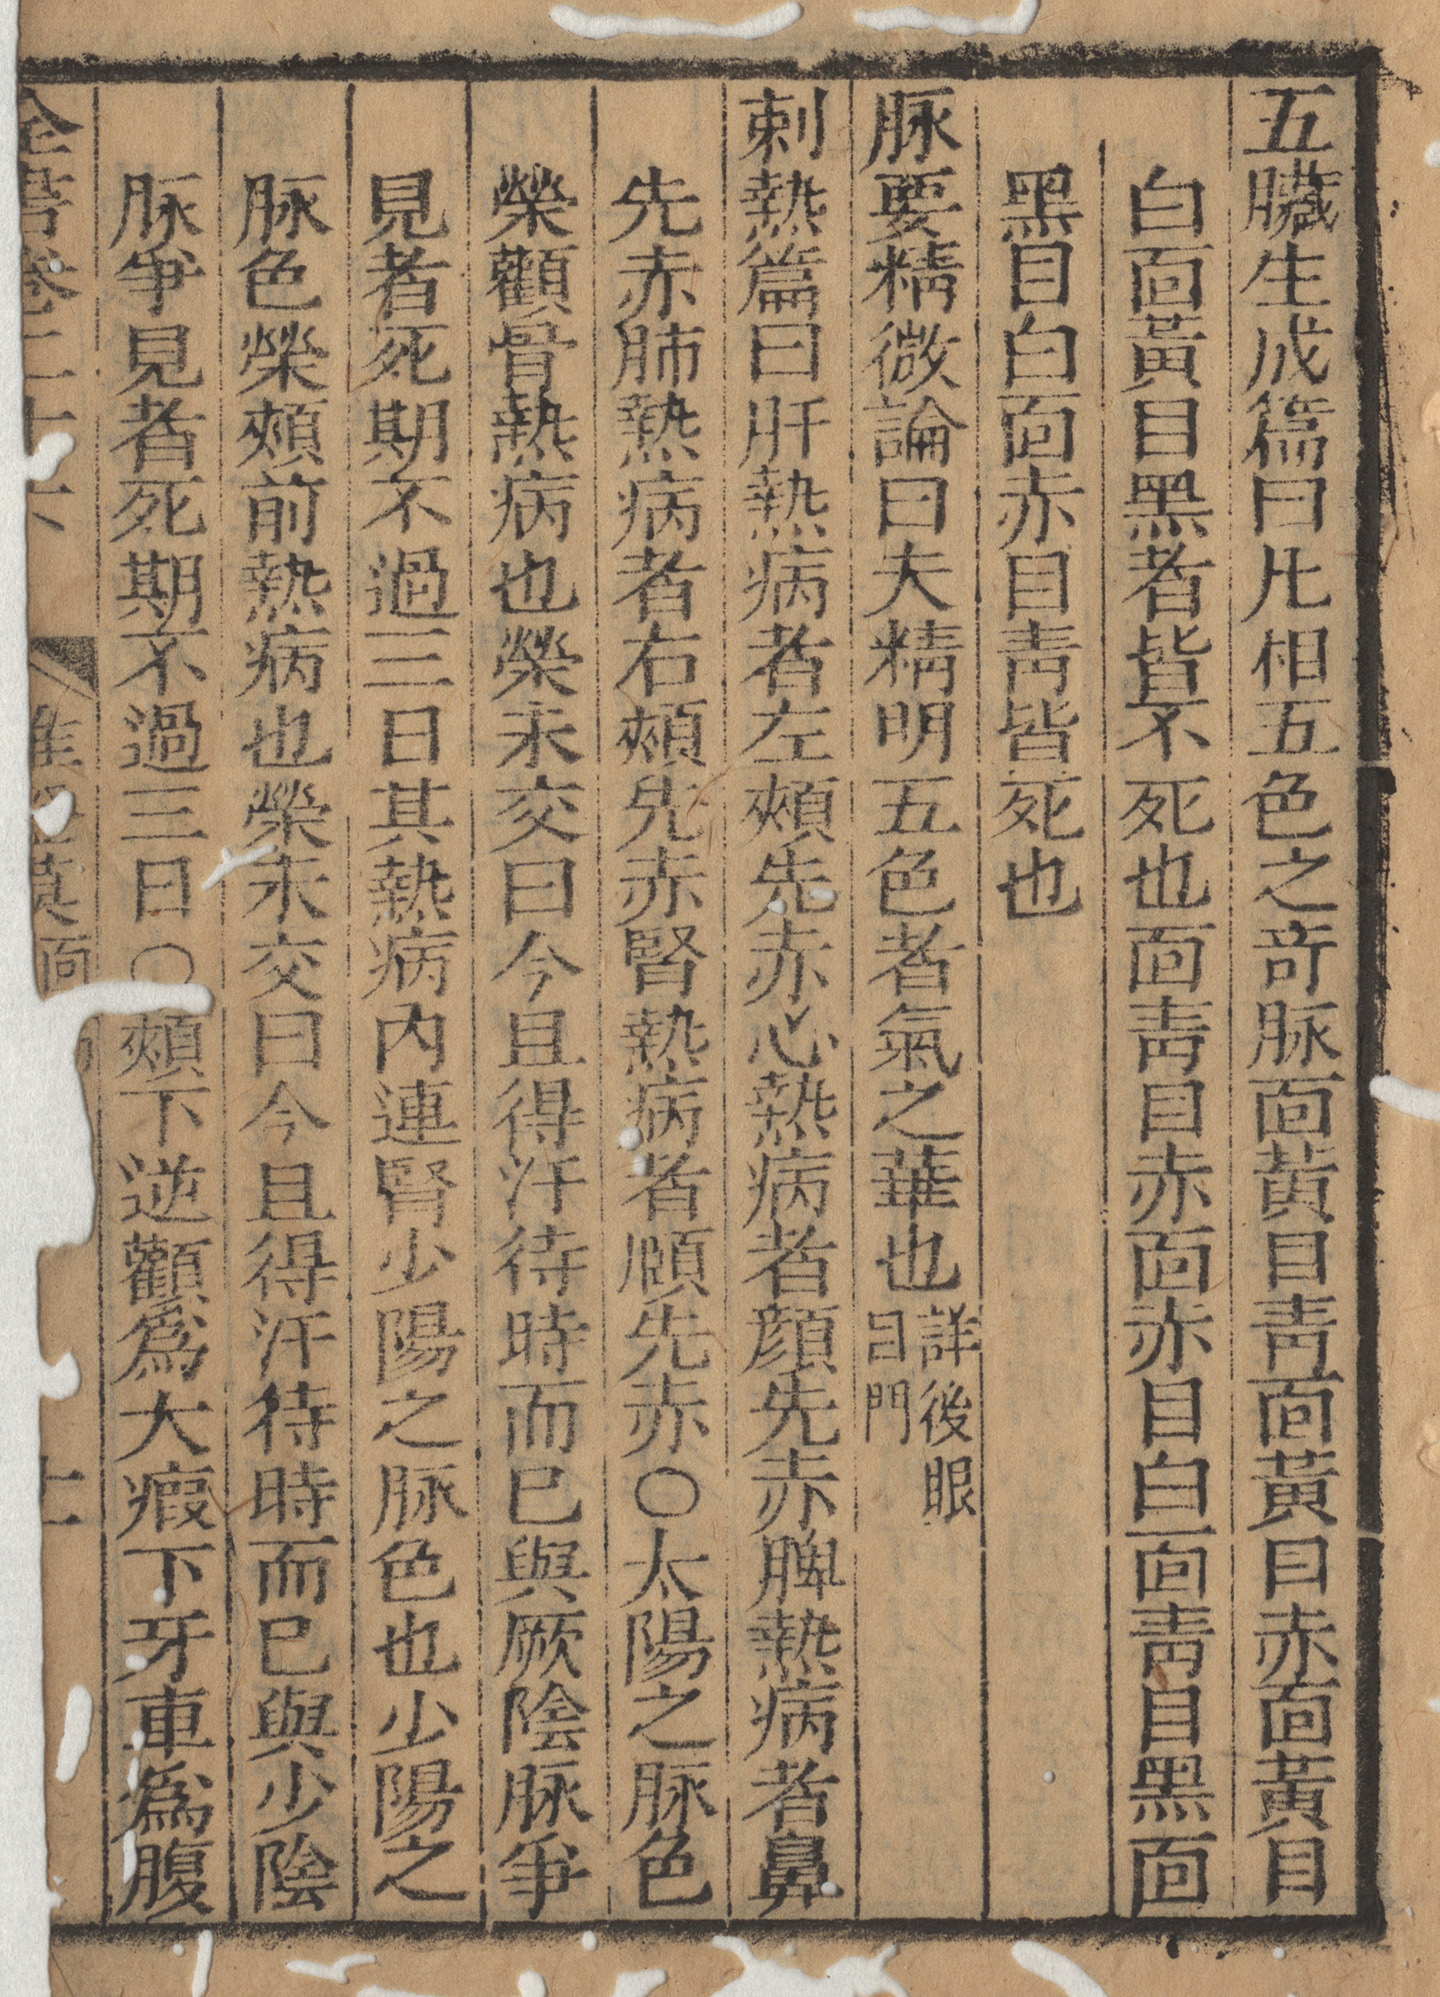 五臟生成篇曰凡相五色之竒脉面黃目靑面黃目赤面黃目
白面黃目黑者皆不死也面靑目赤面赤目白面靑目黑面
黑目白面赤目靑皆死也
脉要精微論曰夫精明五色者氣之華也詳後眼目門
刺熱篇曰肝熱病者左頰先赤心熱病者顔先赤脾熱病者鼻
先赤肺熱病者右頰先赤腎熱病者頤先赤〇太陽之脉色
榮顴骨熱病也榮未交曰今且得汗待時而已與厥陰脉爭
見者死期不過三日其熱病內連腎少陽之脉色也少陽之
脉色榮頰前熱病也榮未交曰今且得汗待時而已與少陰
脉爭見者死期不過三日〇頰下逆顴爲大瘕下牙車爲腹
全書卷二十六 面 十一